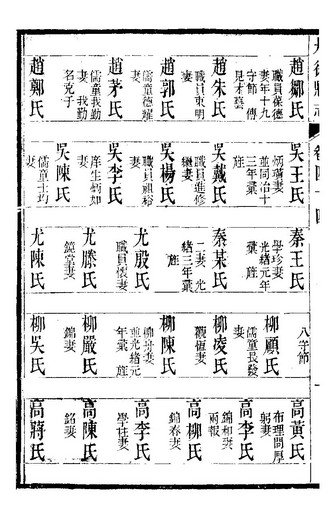 丹徒縣志
卷四十四
趙鄒氏
職員葆德
妻年十九
守節傳
見才藝
趙朱氏
職員東明
妻
趙郭氏
儒童德耀
妻
趙茅氏
儒童我勤
妻我勤
名克子
趙鄭氏
吳王氏
炳璜妻
並同治十
三年彙
旌
吳戴氏
職員進修
繼妻
吳楊氏
職員祺裕
妻
吳李氏
庠生炳如
妻
吳陳氏
儒童士均
妻
秦王氏
學珍妻
光緒元年
彙旌
秦某氏
二妻光
緒三年彙
旌
尤殷氏
職員懷妻
尤滕氏
鏡堂妻
尤陳氏
八守節
柳顧氏
儒童長發
妻
柳凌氏
觀恆妻
柳陳氏
妻
並光緒元
年彙旌
柳嚴氏
錦妻
柳吳氏
高黃氏
布理問厚
躬妻
高李氏
錦和妻
兩報
高柳氏
錦春妻
高李氏
學佳妻
高陳氏
銘妻
高蔣氏